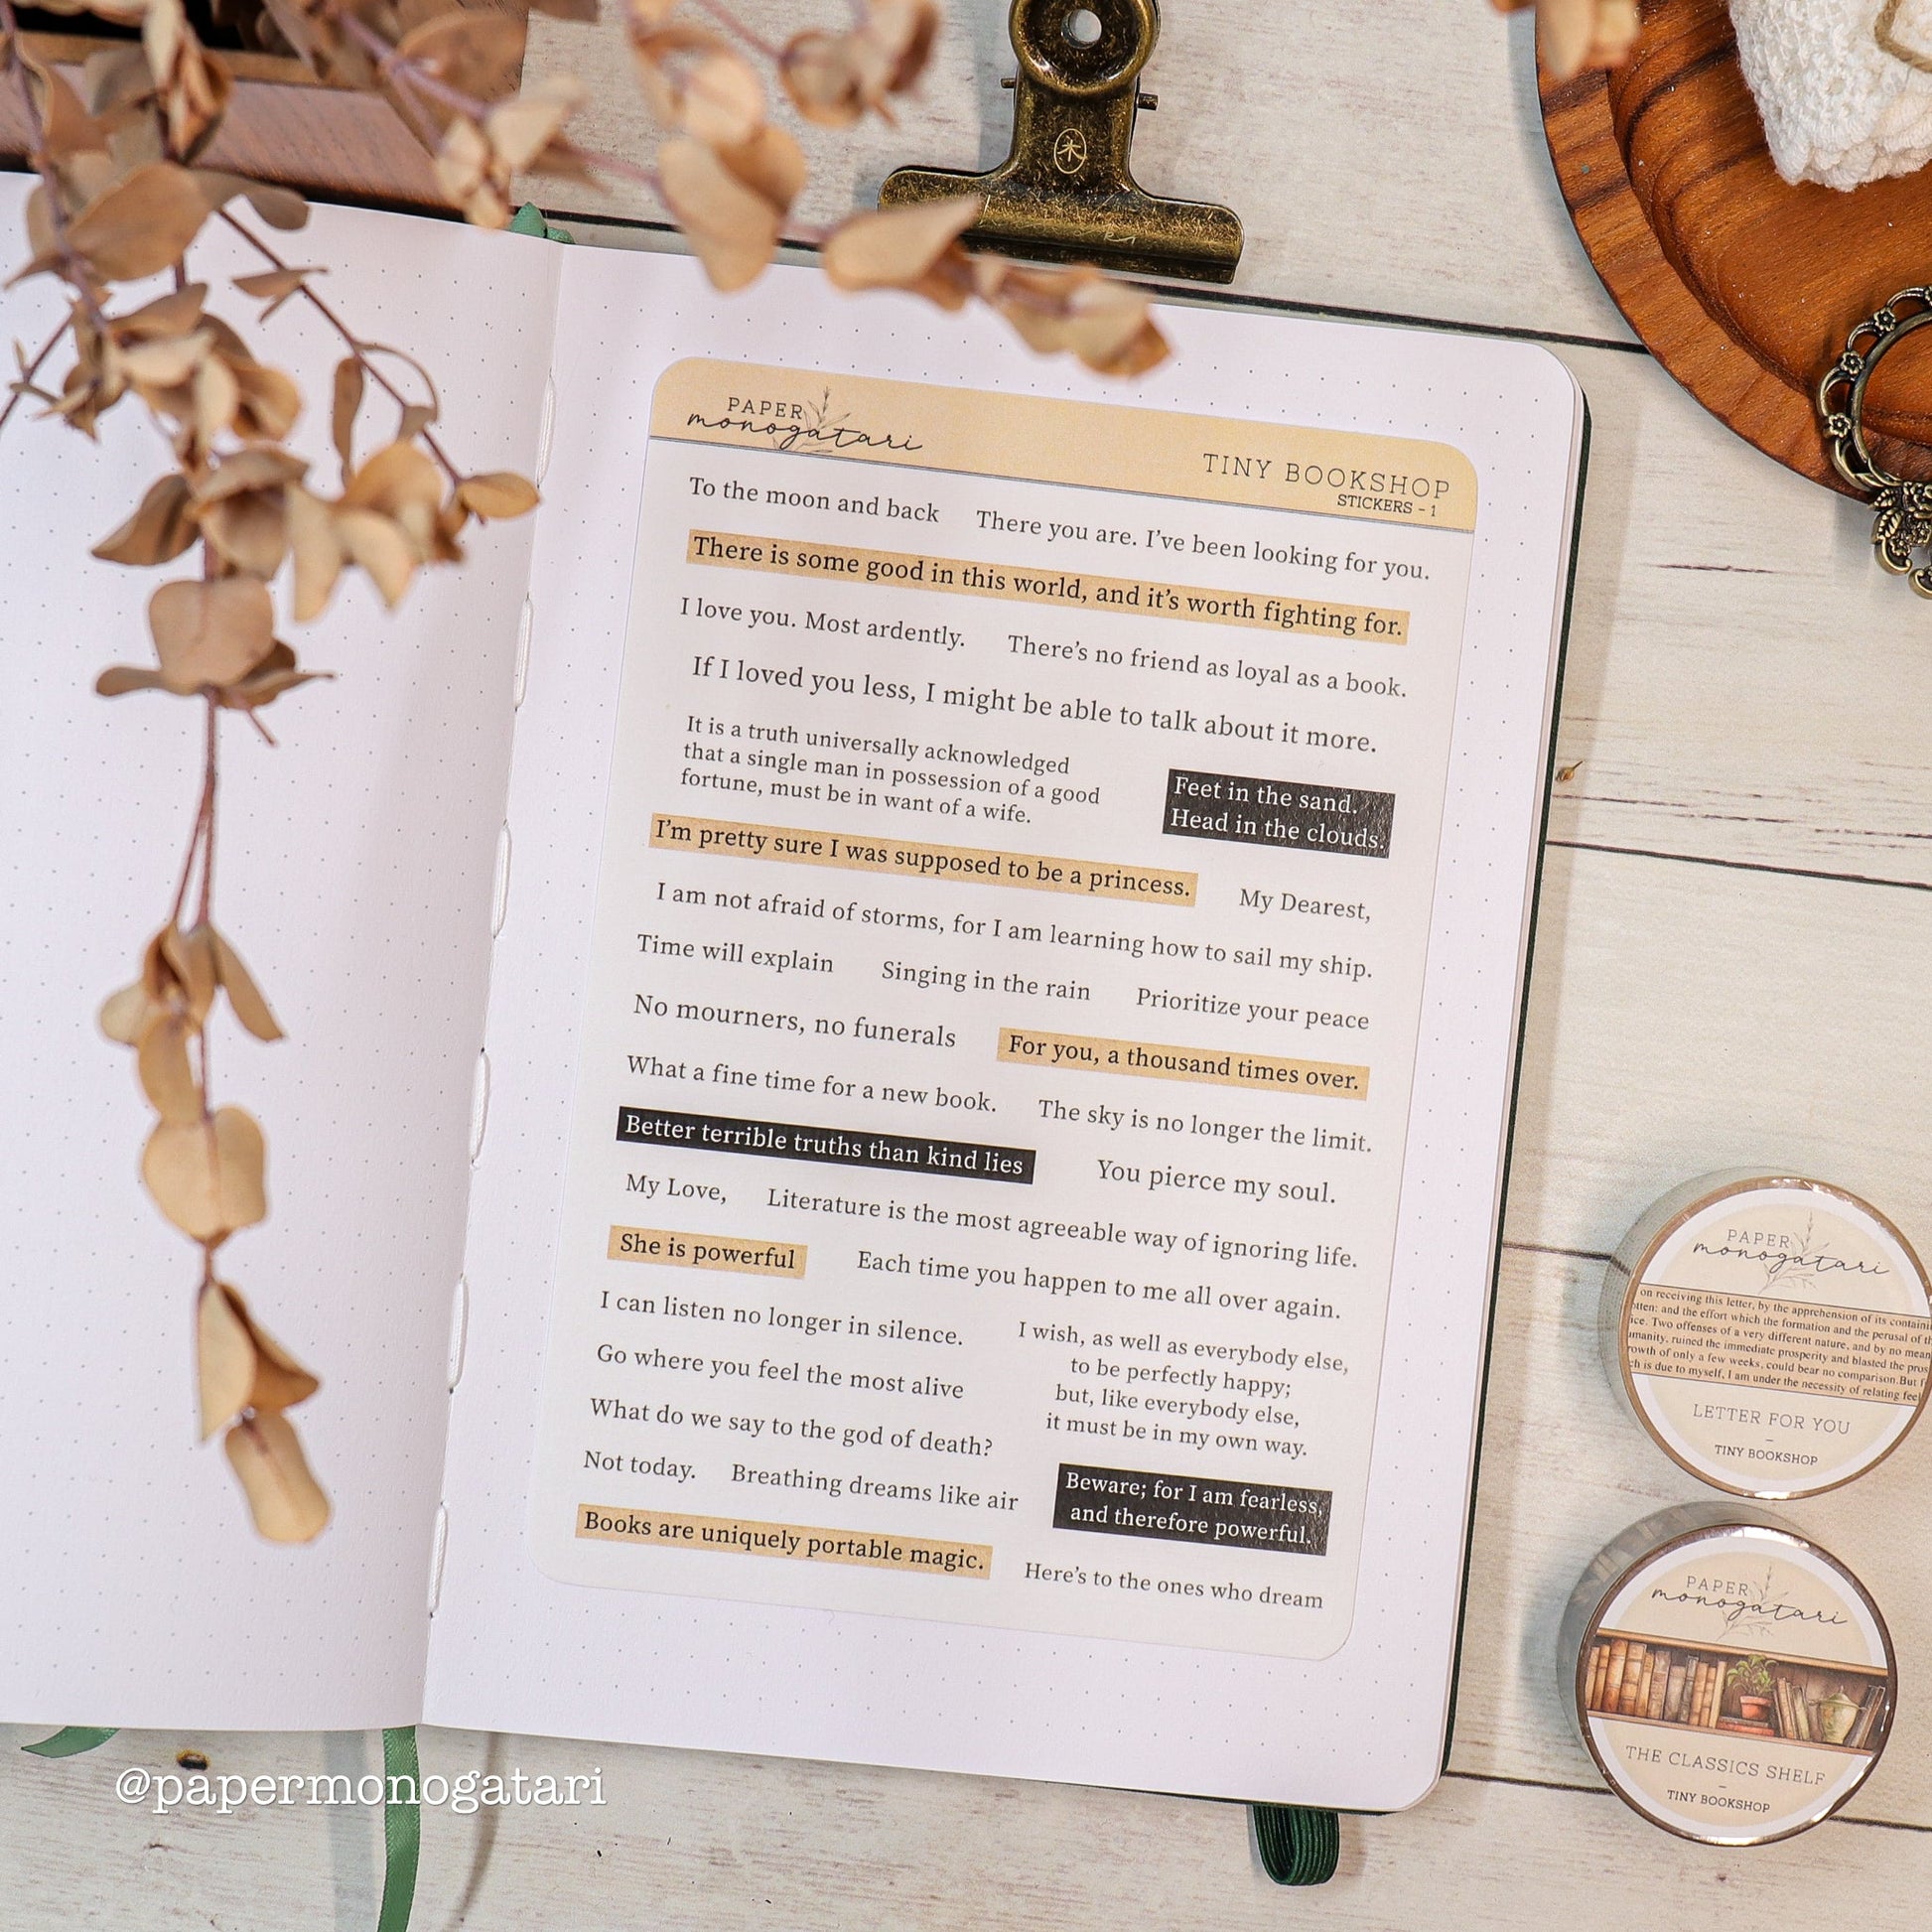 PAPER
monogatari
TINY BOOKSHOP
STICKERS - 1
To the moon and back
There you are. I've been looking for you.
There is some good in this world, and it's worth fighting for.
I love you. Most ardently.
There's no friend as loyal as a book.
If I loved you less, I might be able to talk about it more.
It is a truth universally acknowledged
that a single man in possession of a good
fortune, must be in want of a wife.
Feet in the sand.
Head in the clouds.
I'm pretty sure I was supposed to be a princess.
My Dearest,
I am not afraid of storms, for I am learning how to sail my ship.
Time will explain
Singing in the rain
Prioritize your peace
No mourners, no funerals
For you, a thousand times over.
What a fine time for a new book.
The sky is no longer the limit.
Better terrible truths than kind lies
You pierce my soul.
My Love,
Literature is the most agreeable way of ignoring life.
She is powerful
Each time you happen to me all over again.
I can listen no longer in silence.
I wish, as well as everybody else,
to be perfectly happy;
but, like everybody else,
it must be in my own way.
Go where you feel the most alive
What do we say to the god of death?
Not today.
Breathing dreams like air
Beware; for I am fearless,
and therefore powerful.
Books are uniquely portable magic.
Here's to the ones who dream
PAPER
monogatari
on receiving this letter, by the apprehension of its
and the effort which the formation and the perusal of
Two offenses of a very different nature, and by no
ruined the immediate prosperity and blasted the
of only a few weeks, could bear no comparison.But
is due to myself, I am under the necessity of relating
LETTER FOR YOU
-
TINY BOOKSHOP
PAPER
monogatari
THE CLASSICS SHELF
-
TINY BOOKSHOP
@papermonogatari